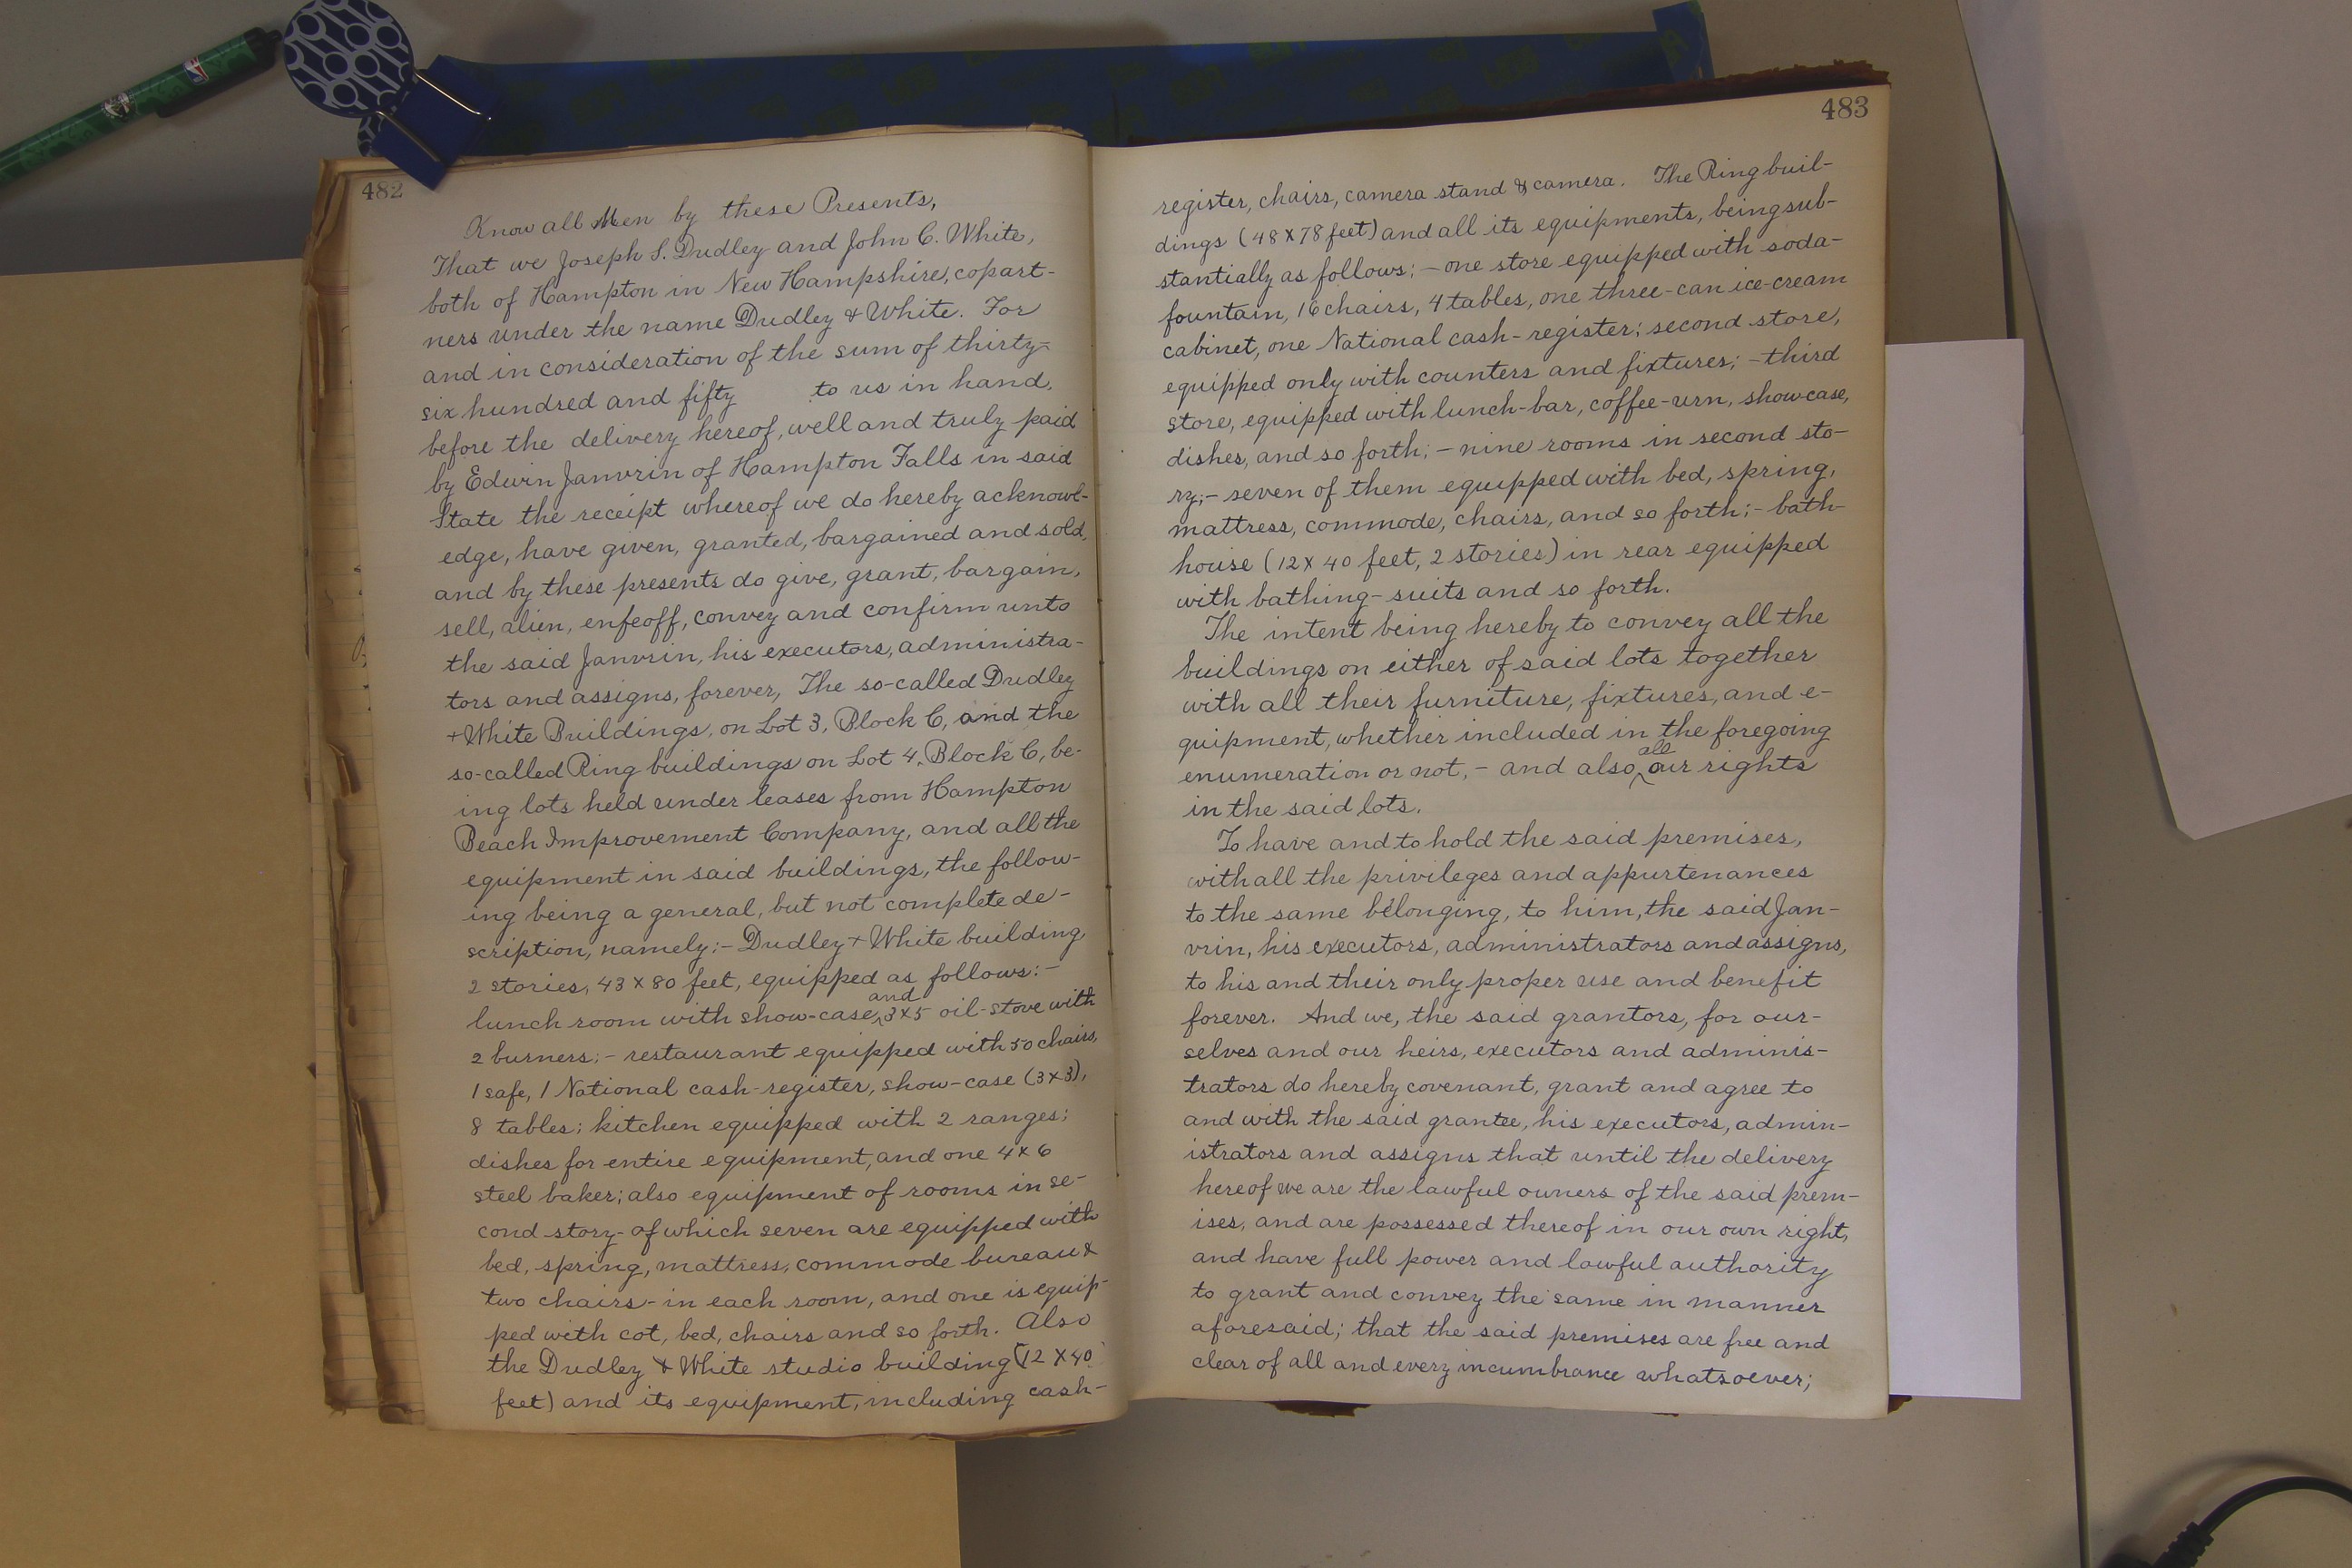 482
Know all Men by these Presents,
That we Joseph S. Dudley and John C. White,
both of Hampton in New Hampshire, copart-
ners under the name Dudley & White. For
and in consideration of the sum of thirty-
six hundred and fifty to us in hand,
before the delivery hereof, well and truly paid
by Edwin Janvrin of Hampton Falls in said
State the receipt whereof we do hereby acknowl-
edge, have given, granted, bargained and sold,
and by these presents do give, grant, bargain,
sell, alien, enfeoff, convey and confirm unto
the said Janvrin, his executors, administra-
tors and assigns, forever, The so-called Dudley
+ White Buildings, on Lot 3, Block C, and the
so-called Ring buildings on Lot 4, Block C, be-
ing lots held under leases from Hampton
Beach Improvement Company, and all the
equipment in said buildings, the follow-
ing being a general, but not complete de-
scription, namely:- Dudley + White building
2 stories, 43 x 80 feet, equipped as follows:-
lunch room with show-case, and 3x5 oil-stove with
2 burners;- restaurant equipped with 50 chairs,
1 safe, 1 National cash-register, show-case (3x3),
8 tables; kitchen equipped with 2 ranges;
dishes for entire equipment, and one 4x6
steel baker; also equipment of rooms in se-
cond story- of which seven are equipped with
bed, spring, mattress, commode bureau &
two chairs- in each room, and one is equip-
ped with cot, bed, chairs and so forth. Also
the Dudley & White studio building (12 X 40
feet) and its equipment, including cash-
483
register, chairs, camera stand & camera. The Ring buil-
dings (48 X 78 feet) and all its equipments, being sub-
stantially as follows; - one store equipped with soda-
fountain, 16 chairs, 4 tables, one three-can ice-cream
cabinet, one National cash-register; second store,
equipped only with counters and fixtures; - third
store, equipped with lunch-bar, coffee-urn, showcase,
dishes, and so forth; - nine rooms in second sto-
ry;- seven of them equipped with bed, spring,
mattress, commode, chairs, and so forth; - bath-
house (12 x 40 feet, 2 stories) in rear equipped
with bathing-suits and so forth.
The intent being hereby to convey all the
buildings on either of said lots together
with all their furniture, fixtures, and e-
quipment, whether included in the foregoing
enumeration or not, - and also all our rights
in the said lots.
To have and to hold the said premises,
with all the privileges and appurtenances
to the same belonging, to him, the said Jan-
vrin, his executors, administrators and assigns,
to his and their only proper use and benefit
forever. And we, the said grantors, for our-
selves and our heirs, executors and adminis-
trators do hereby covenant, grant and agree to
and with the said grantee, his executors, admin-
istrators and assigns that until the delivery
hereof we are the lawful owners of the said prem-
ises, and are possessed thereof in our own right,
and have full power and lawful authority
to grant and convey the same in manner
aforesaid; that the said premises are free and
clear of all and every incumbrance whatsoever;